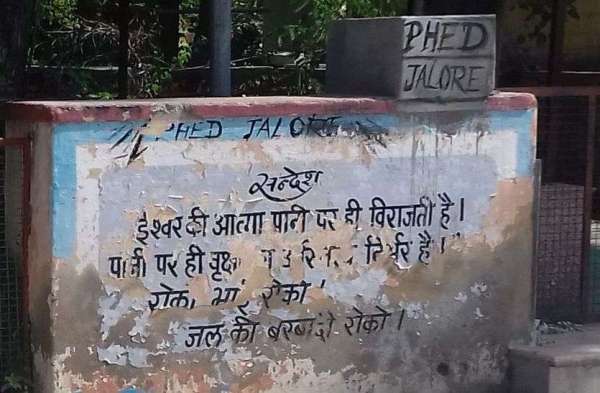 PHED
JALORE
PHED JALORE
सन्देश
ईश्वर की आत्मा पानी पर ही विराजती है।
पानी पर ही वृक्ष निर्भर है।
रोको
जल की बरबादी रोको।